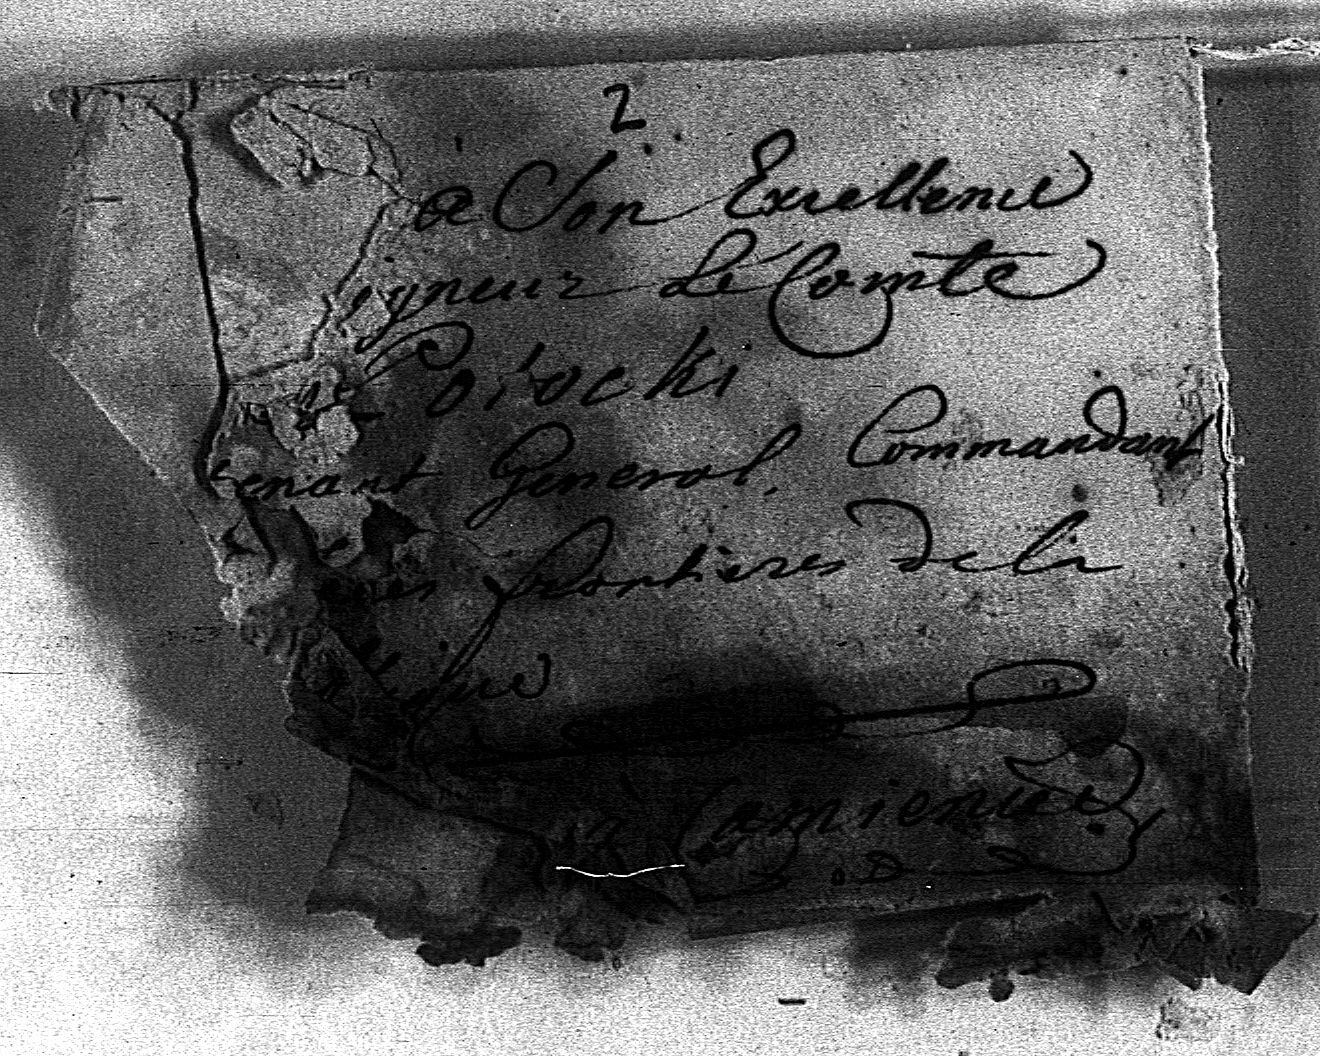 2.
a Son Excellence
igneur Le Comte
Potocki
tenant General, Commandant
frontieres de la
blique
a Camieniec